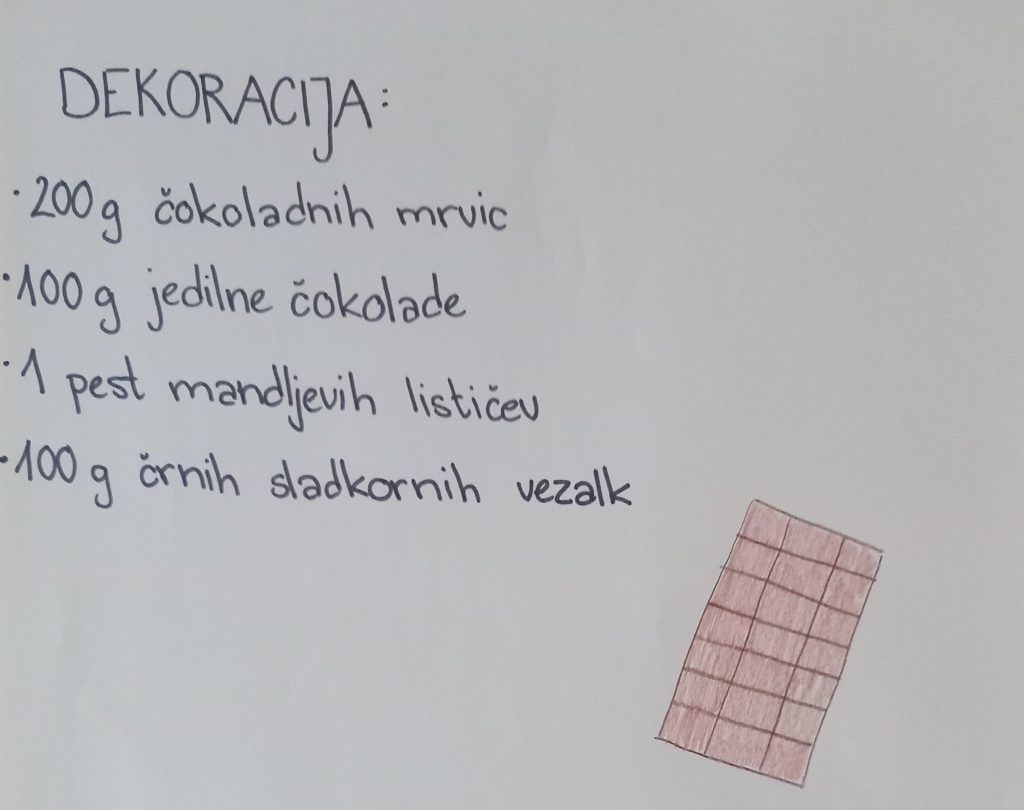 DEKORACIJA:
· 200g čokoladnih mrvic
· 100g jedilne čokolade
· 1 pest mandljevih lističev
· 100g črnih sladkornih vezalk